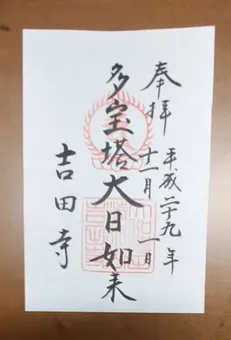 奉拝
平成二十九年
十一月一日
多宝塔大日如来
吉田寺